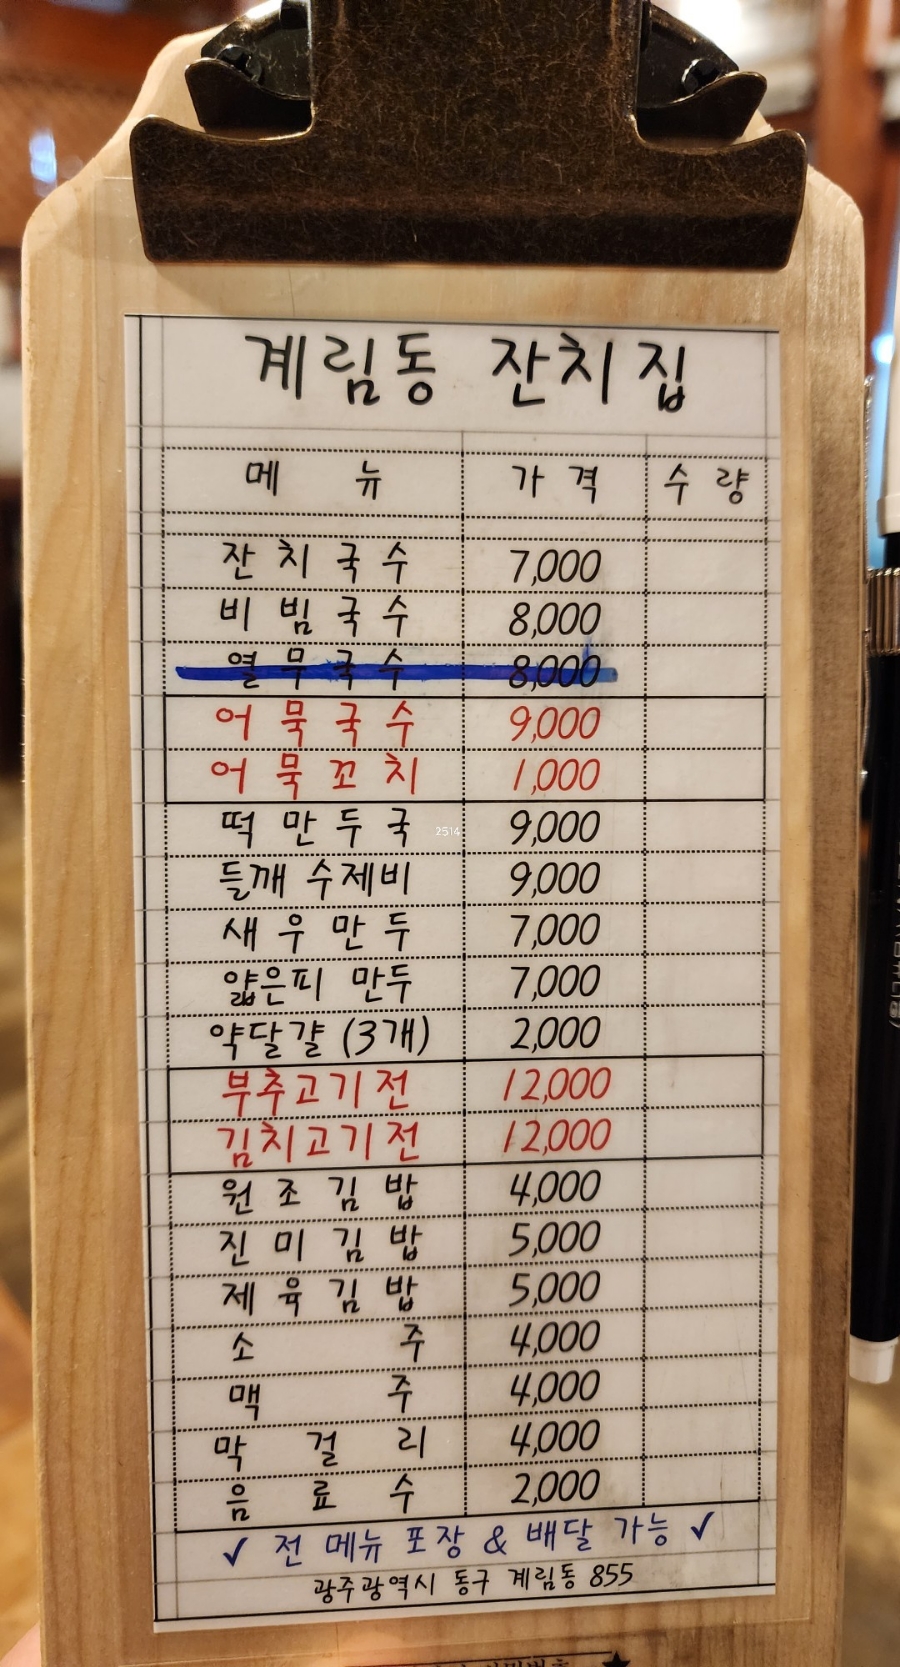 계림동 잔치집
메뉴 가격 수량
잔치국수 7,000
비빔국수 8,000
열무국수 8,000
어묵국수 9,000
어묵꼬치 1,000
떡만두국 9,000
2514
들깨 수제비 9,000
새우만두 7,000
얇은피 만두 7,000
약달걀 (3개) 2,000
부추고기전 12,000
김치고기전 12,000
원조김밥 4,000
진미김밥 5,000
제육김밥 5,000
소주 4,000
맥주 4,000
막걸리 4,000
음료수 2,000
✓ 전 메뉴 포장 & 배달 가능 ✓
광주광역시 동구 계림동 855